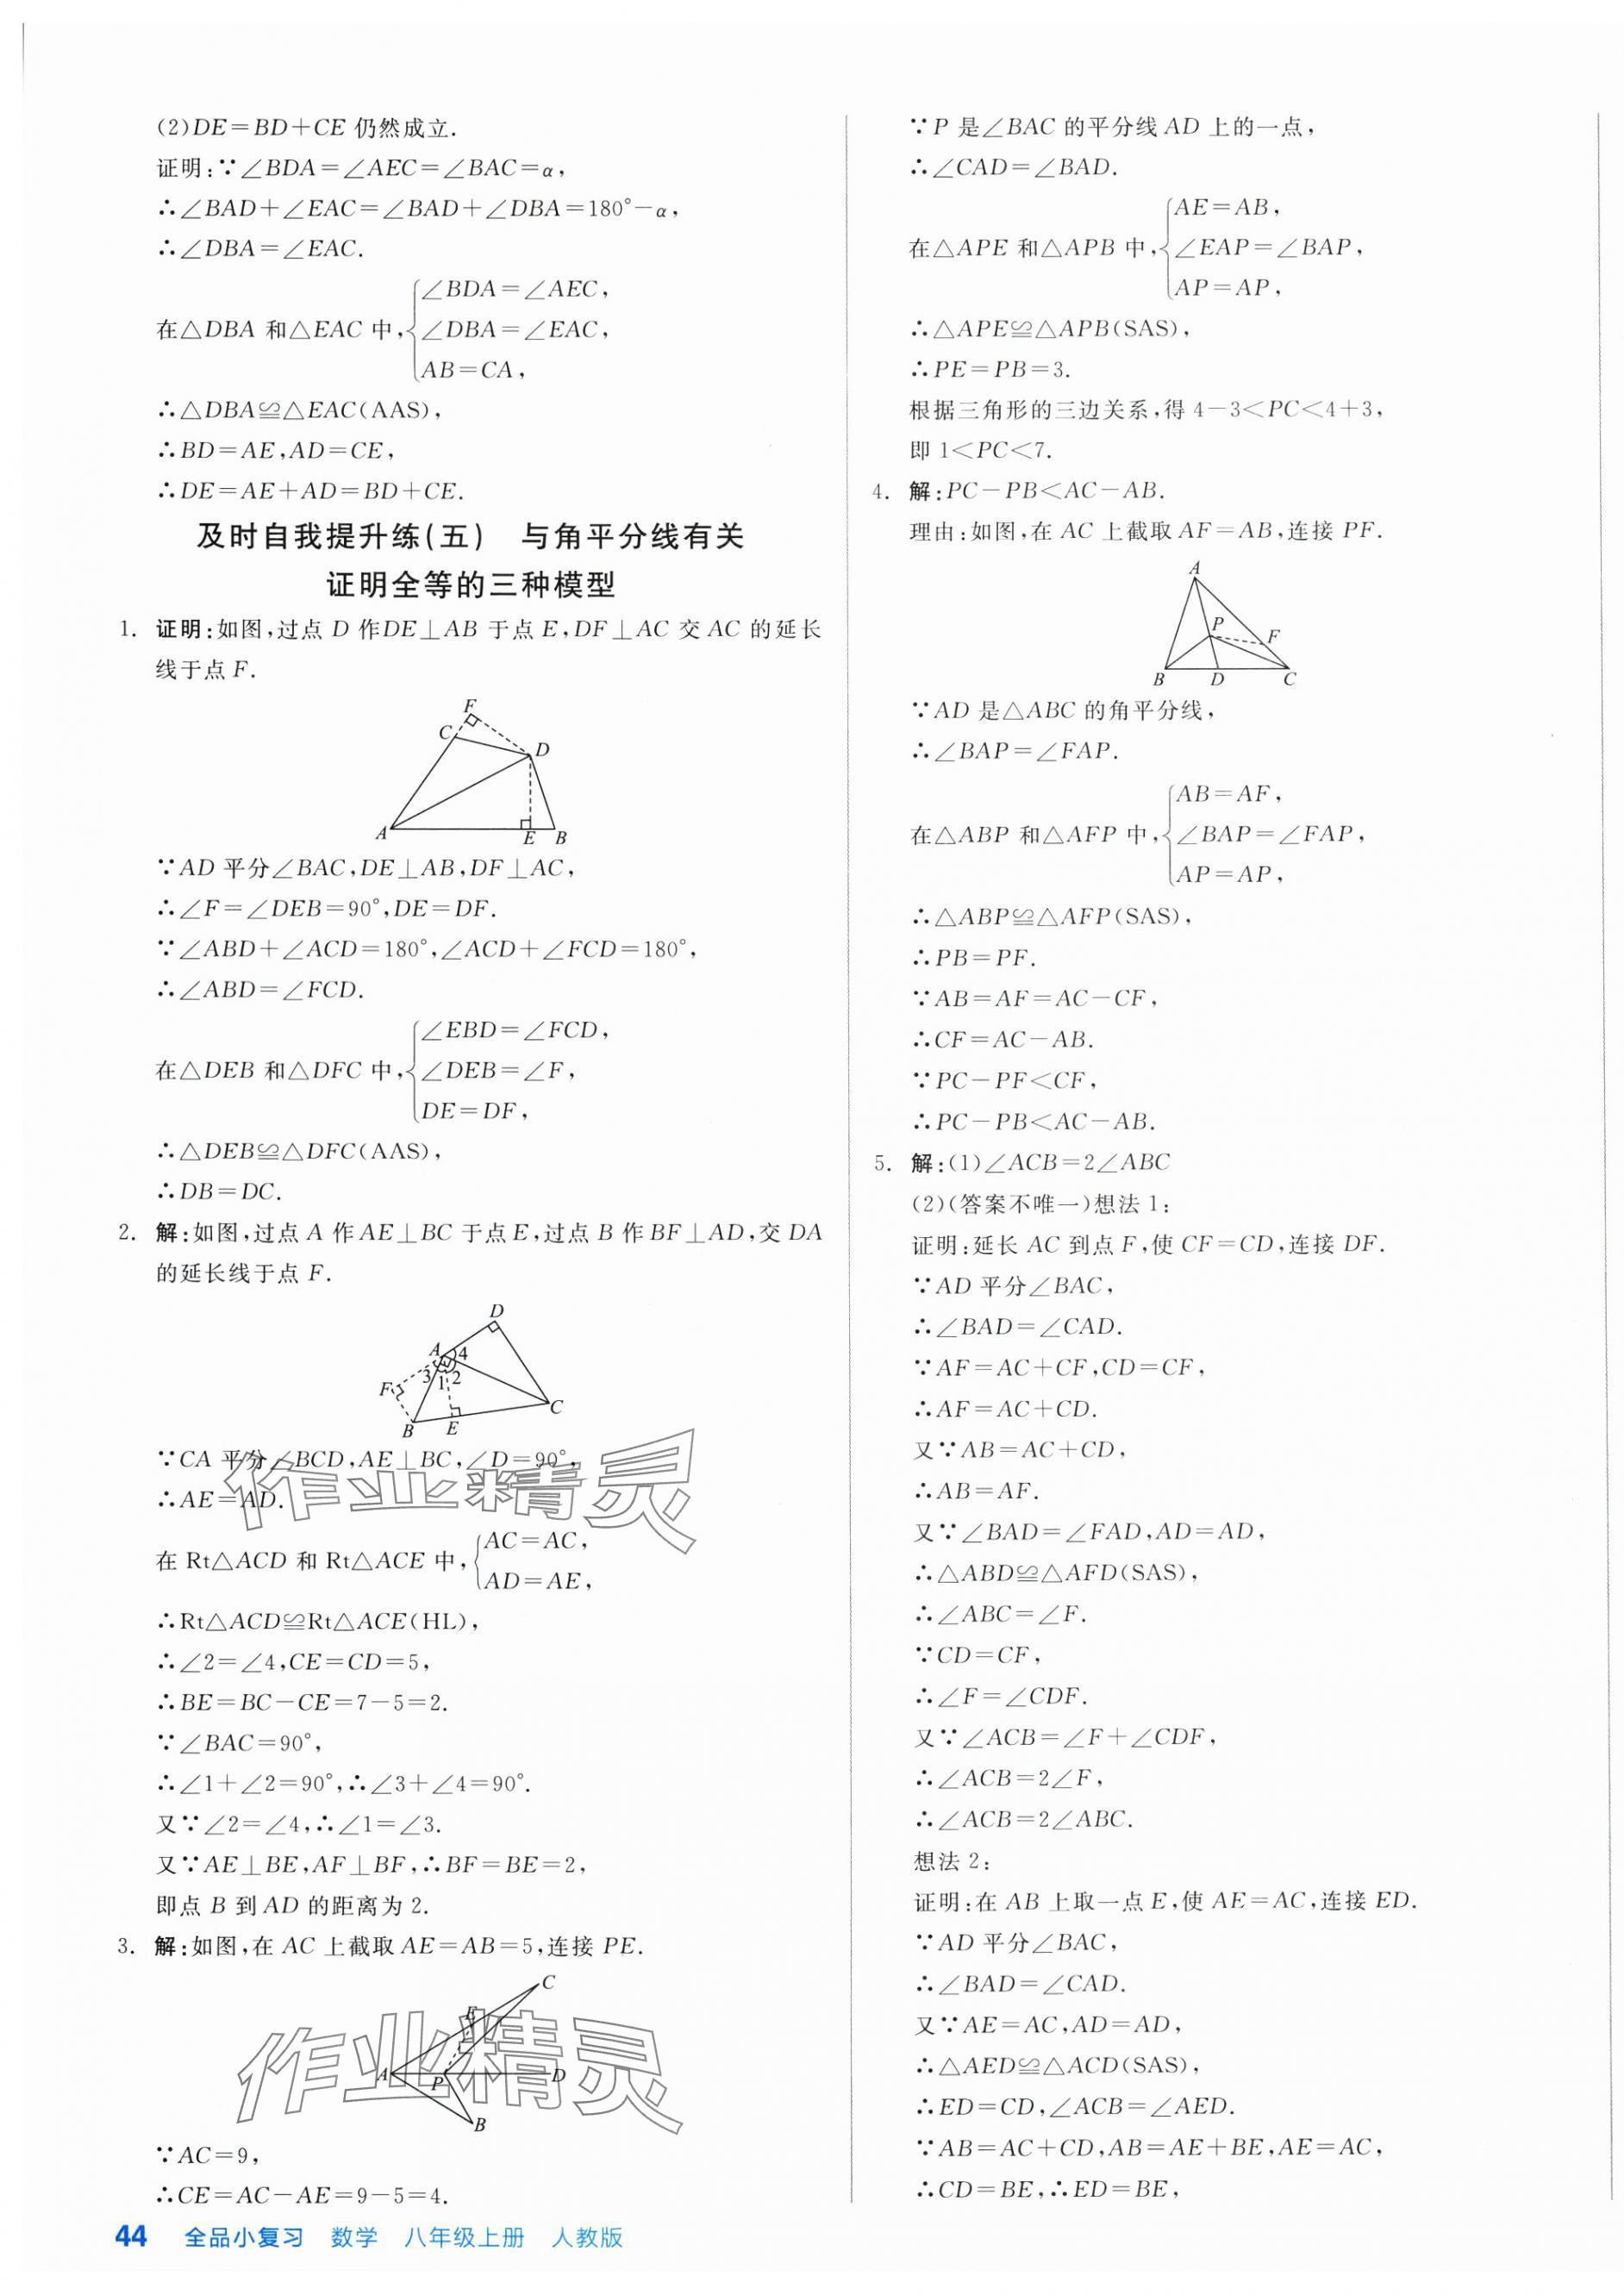 (2)DE=BD+CE 仍然成立.
证明:∵∠BDA=∠AEC=∠BAC=α,
∴∠BAD+∠EAC=∠BAD+∠DBA=180°-α,
∴∠DBA=∠EAC.
∠BDA=∠AEC,
在△DBA 和△EAC 中,∠DBA=∠EAC,
AB=CA,
∴△DBA≌△EAC(AAS),
∴BD=AE,AD=CE,
∴DE=AE+AD=BD+CE.
及时自我提升练(五) 与角平分线有关
证明全等的三种模型
1. 证明:如图,过点 D 作DE⊥AB 于点 E,DF⊥AC 交 AC 的延长
线于点 F.
F
C
D
A
E
B
∵AD 平分∠BAC,DE⊥AB,DF⊥AC,
∴∠F=∠DEB=90°,DE=DF.
∵∠ABD+∠ACD=180°,∠ACD+∠FCD=180°,
∴∠ABD=∠FCD.
∠EBD=∠FCD,
在△DEB 和△DFC 中,∠DEB=∠F,
DE=DF,
∴△DEB≌△DFC(AAS),
∴DB=DC.
2. 解:如图,过点 A 作 AE⊥BC 于点 E,过点 B 作 BF⊥AD,交 DA
的延长线于点 F.
D
A 4
3 1 2
F
B E C
∵CA 平分∠BCD,AE⊥BC,∠D=90°,
∴AE=AD.
作业精灵
在 Rt△ACD 和 Rt△ACE 中,AC=AC,
AD=AE,
∴Rt△ACD≌Rt△ACE(HL),
∴∠2=∠4,CE=CD=5,
∴BE=BC-CE=7-5=2.
∵∠BAC=90°,
∴∠1+∠2=90°,∴∠3+∠4=90°.
又∵∠2=∠4,∴∠1=∠3.
又∵AE⊥BE,AF⊥BF,∴BF=BE=2,
即点 B 到 AD 的距离为 2.
3. 解:如图,在 AC 上截取 AE=AB=5,连接 PE.
C
E
A P D
B
作业精灵
∵AC=9,
∴CE=AC-AE=9-5=4.
∵P 是∠BAC 的平分线 AD 上的一点,
∴∠CAD=∠BAD.
AE=AB,
在△APE 和△APB 中,∠EAP=∠BAP,
AP=AP,
∴△APE≌△APB(SAS),
∴PE=PB=3.
根据三角形的三边关系,得 4-3<PC<4+3,
即 1<PC<7.
4. 解:PC-PB<AC-AB.
理由:如图,在 AC 上截取 AF=AB,连接 PF.
A
P
F
B D C
∵AD 是△ABC 的角平分线,
∴∠BAP=∠FAP.
AB=AF,
在△ABP 和△AFP 中,∠BAP=∠FAP,
AP=AP,
∴△ABP≌△AFP(SAS),
∴PB=PF.
∵AB=AF=AC-CF,
∴CF=AC-AB.
∵PC-PF<CF,
∴PC-PB<AC-AB.
5. 解:(1)∠ACB=2∠ABC
(2)(答案不唯一)想法 1:
证明:延长 AC 到点 F,使 CF=CD,连接 DF.
∵AD 平分∠BAC,
∴∠BAD=∠CAD.
∵AF=AC+CF,CD=CF,
∴AF=AC+CD.
又∵AB=AC+CD,
∴AB=AF.
又∵∠BAD=∠FAD,AD=AD,
∴△ABD≌△AFD(SAS),
∴∠ABC=∠F.
∵CD=CF,
∴∠F=∠CDF.
又∵∠ACB=∠F+∠CDF,
∴∠ACB=2∠F,
∴∠ACB=2∠ABC.
想法 2:
证明:在 AB 上取一点 E,使 AE=AC,连接 ED.
∵AD 平分∠BAC,
∴∠BAD=∠CAD.
又∵AE=AC,AD=AD,
∴△AED≌△ACD(SAS),
∴ED=CD,∠ACB=∠AED.
∵AB=AC+CD,AB=AE+BE,AE=AC,
∴CD=BE,∴ED=BE,
44 全品小复习 数学 八年级上册 人教版